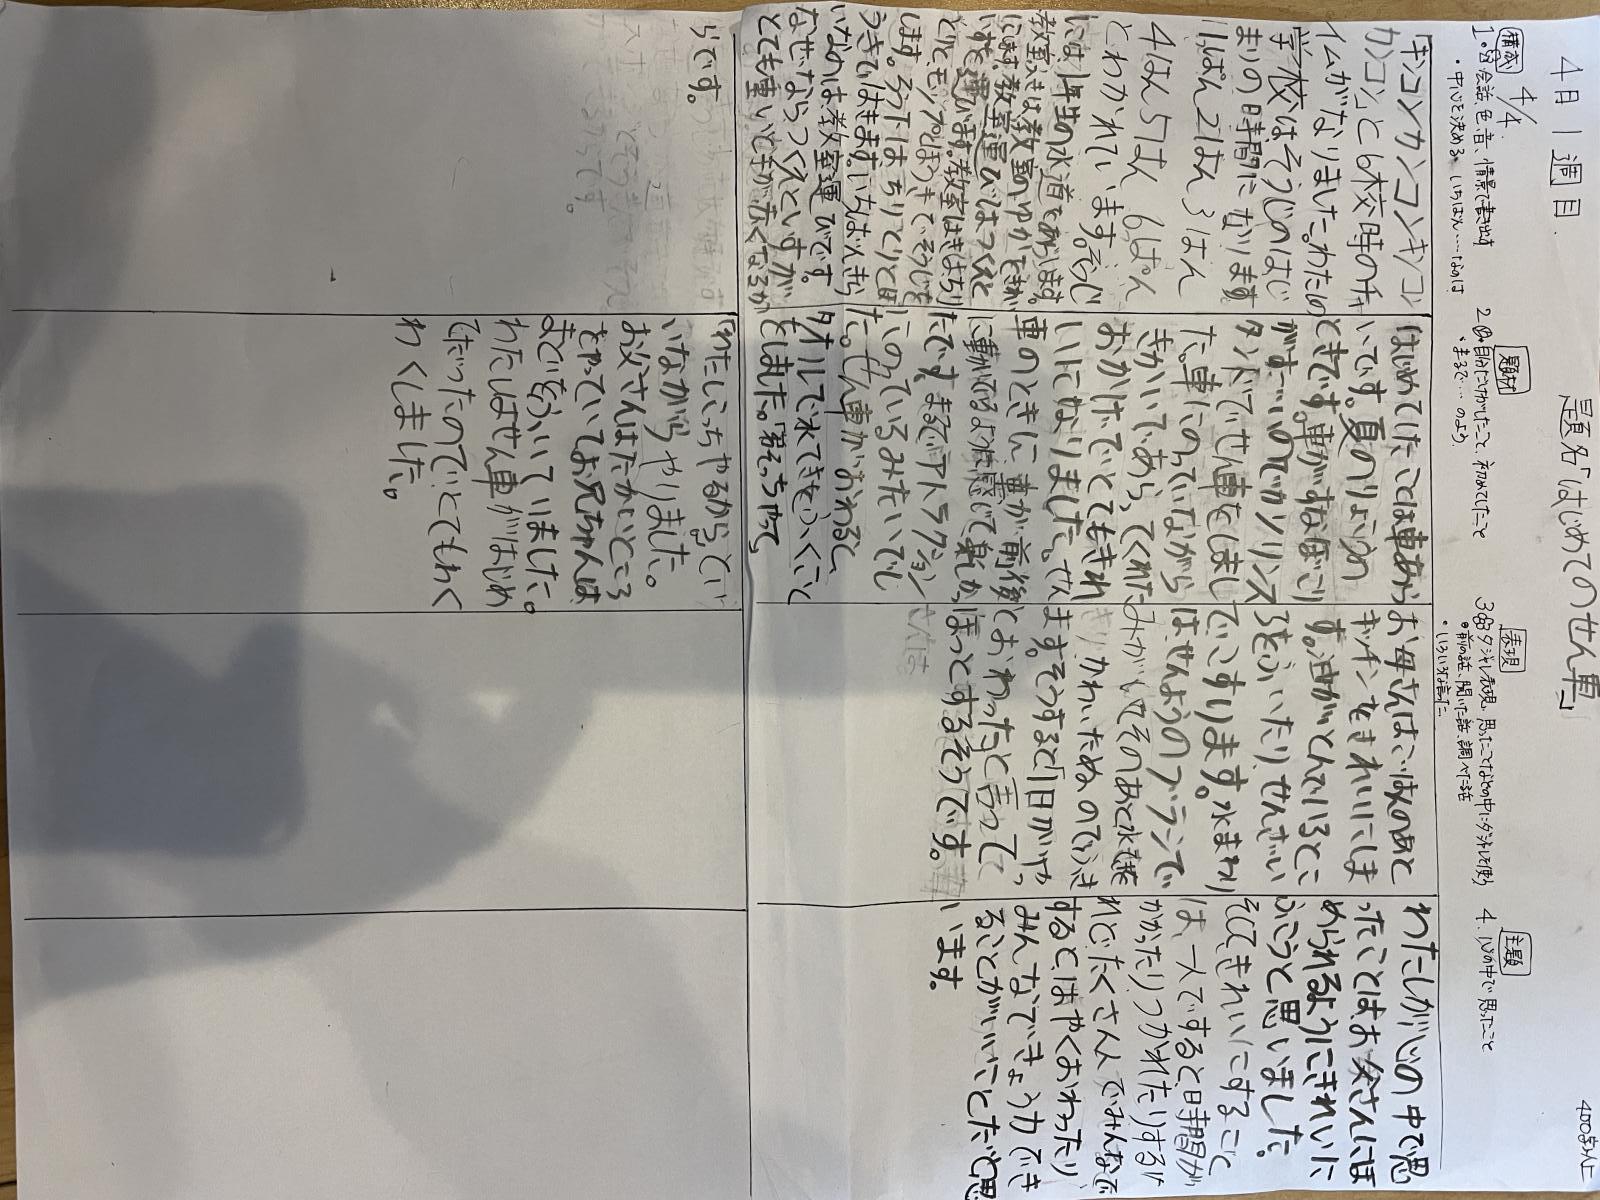 4月1週目
題名「はじめてのせん車」
400字以上
4/4
構成
1. 会話、色、音、情景で書き出す
・中心を決める。いちばん……なのは
題材
2. 目にうかがたこと、初めてしたこと
・まるで…のよう
表現
3. ダジャレ表現、思ったことなどの中にダジャレを使う
●前の話、聞いた話、調べた話
主題
4. 心の中で思ったこと
「キンコンカンコンキンコン
カンコン」と6校時のチャ
イムがなりました。わたしの
学校はそうじのはじ
まりの時間になります
1ぱん2はん3はん
4はん5はん6ぱん
とわかれています。ろうじ
には1年生の水道をあらいます。
教室ふきは教室のゆかをふき
ます。教室運びはつくえと
いすを運びます。教室はきはちり
とりとモップとほうきでそうじを
します。ろう下はちりとりとほ
うきではきます。いちばんきら
いなのは教室運びです。
なぜならつくえといすが
とても重いと手が赤くなるか
らです。
はじめてしたことは車あら
いです。夏のりょこうの
ときです。車がすなぼこり
がすごいのでガソリンス
タンドでせん車をしまし
た。車にのっていながら
きかいであらってくれた
おかげでとてもきれ
いになりました。せん
車のときに車が前後
に動いてるような感じで楽しかっ
たです。まるでアトラクション
にのっているみたいでし
た。せん車がおわると、
タオルで水てきをふくこと
をしました。「君そっちやって、
わたしこっちやるから」とい
いながらやりました。
お父さんはたかいところ
をやっていてお兄ちゃんは
まどをふいていました。
わたしはせん車がはじめ
てだったのでとてもわく
わくしました。
お母さんはごはんのあと
キッチンをきれいにしま
す。油がとんでいるとこ
ろをふいたりせんざい
でこすります。水まわり
はせんようのブラシで
みがいてそのあと水を
きりかわいたぬのでふき
ます。そうすると「1日がやっ
とおわった」と言って
ほっとするそうです。
わたしが心の中で思
ったことはお父さんにほ
められるようにきれいに
ふこうと思いました。
そしてきれいにすること
は、一人ですると時間が
かかったりつかれたりするけ
れどたくさん人でみんなで
するとはやくおわったり
みんなできょう力でき
ることがいいことだと思
います。